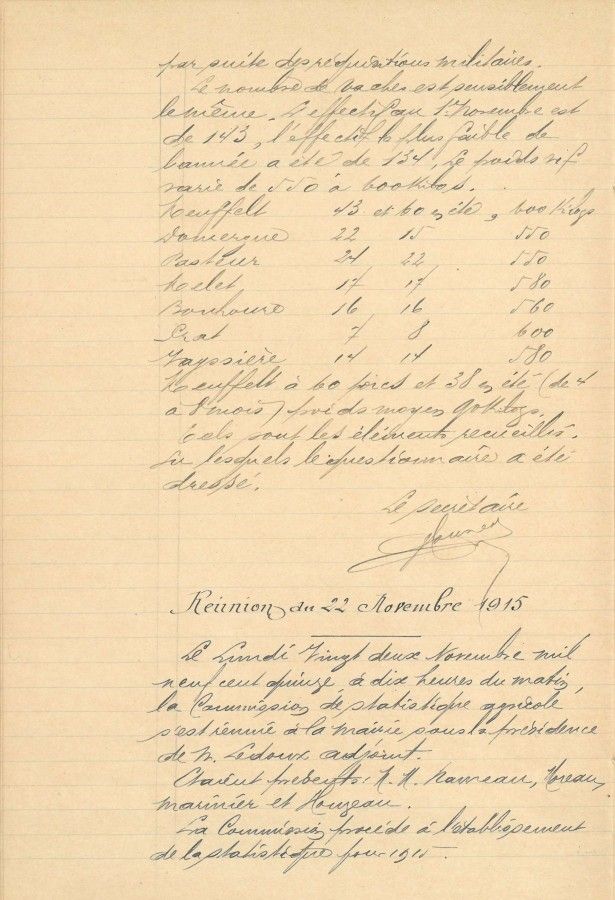 par suite des réquisitions militaires.
Le nombre de vaches est sensiblement
le même. L'effectif au 1er Novembre est
de 143, l'effectif le plus faible de
l'année a été de 134, le poids vif
varie de 550 à 600 Kilos.
Neuffelt 43 et 60 en été, 600 Kilogs
Domergue 22 15 550
Pasteur 24 22 550
Melet 17 17 580
Bonhoure 16 16 560
Prat 7 8 600
Vayssière 14 14 580
Neuffelt à 60 porcs et 38 en été (de 4
à 8 mois) poids moyen 90 Kilogs.
Tels sont les éléments recueillis.
sur lesquels le questionnaire a été
dressé.
Le secrétaire
Réunion du 22 Novembre 1915
Le Lundi Vingt deux Novembre mil
neuf cent quinze, à dix heures du matin,
la Commission de statistique agricole
s'est réunie à la mairie sous la présidence
de M. Ledoux adjoint.
Etaient présents: M. M. Rameau, Moreau,
Marinier et Houzeau.
La Commission procède à l'établissement
de la statistique pour 1915.